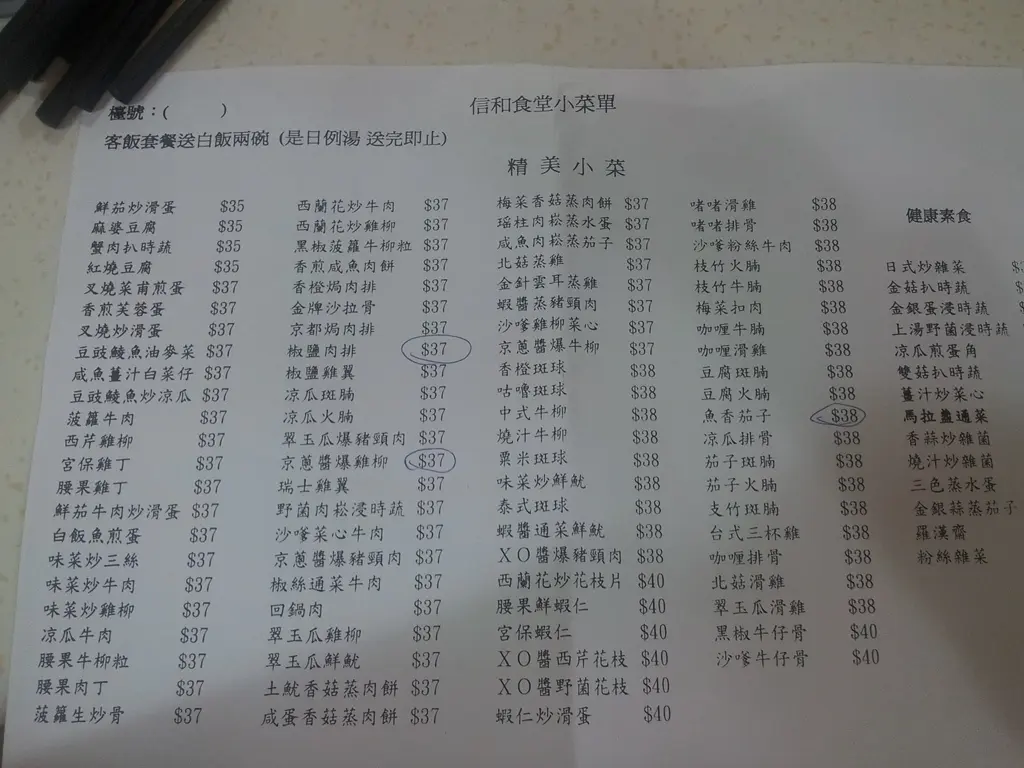 檯號：(　　)
信和食堂小菜單
客飯套餐送白飯兩碗 (是日例湯 送完即止)
精美小菜
鮮茄炒滑蛋 $35
麻婆豆腐 $35
蟹肉扒時蔬 $35
紅燒豆腐 $35
叉燒菜甫煎蛋 $37
香煎芙蓉蛋 $37
叉燒炒滑蛋 $37
豆豉鯪魚油麥菜 $37
咸魚薑汁白菜仔 $37
豆豉鯪魚炒凉瓜 $37
菠蘿牛肉 $37
西芹雞柳 $37
宮保雞丁 $37
腰果雞丁 $37
鮮茄牛肉炒滑蛋 $37
白飯魚煎蛋 $37
味菜炒三絲 $37
味菜炒牛肉 $37
味菜炒雞柳 $37
凉瓜牛肉 $37
腰果牛柳粒 $37
腰果肉丁 $37
菠蘿生炒骨 $37
西蘭花炒牛肉 $37
西蘭花炒雞柳 $37
黑椒菠蘿牛柳粒 $37
香煎咸魚肉餅 $37
香橙焗肉排 $37
金牌沙拉骨 $37
京都焗肉排 $37
椒鹽肉排 $37
椒鹽雞翼 $37
凉瓜斑腩 $37
凉瓜火腩 $37
翠玉瓜爆豬頸肉 $37
京蔥醬爆雞柳 $37
瑞士雞翼 $37
野菌肉崧浸時蔬 $37
沙嗲菜心牛肉 $37
京蔥醬爆豬頸肉 $37
椒絲通菜牛肉 $37
回鍋肉 $37
翠玉瓜雞柳 $37
翠玉瓜鮮魷 $37
土魷香菇蒸肉餅 $37
咸蛋香菇蒸肉餅 $37
梅菜香菇蒸肉餅 $37
瑤柱肉崧蒸水蛋 $37
咸魚肉崧蒸茄子 $37
北菇蒸雞 $37
金針雲耳蒸雞 $37
蝦醬蒸豬頸肉 $37
沙嗲雞柳菜心 $37
京蔥醬爆牛柳 $37
香橙斑球 $38
咕嚕斑球 $38
中式牛柳 $38
燒汁牛柳 $38
粟米斑球 $38
味菜炒鮮魷 $38
泰式斑球 $38
蝦醬通菜鮮魷 $38
XO醬爆豬頸肉 $38
西蘭花炒花枝片 $40
腰果鮮蝦仁 $40
宮保蝦仁 $40
XO醬西芹花枝 $40
XO醬野菌花枝 $40
蝦仁炒滑蛋 $40
啫啫滑雞 $38
啫啫排骨 $38
沙嗲粉絲牛肉 $38
枝竹火腩 $38
枝竹牛腩 $38
梅菜扣肉 $38
咖喱牛腩 $38
咖喱滑雞 $38
豆腐斑腩 $38
豆腐火腩 $38
魚香茄子 $38
凉瓜排骨 $38
茄子斑腩 $38
茄子火腩 $38
支竹斑腩 $38
台式三杯雞 $38
咖喱排骨 $38
北菇滑雞 $38
翠玉瓜滑雞 $38
黑椒牛仔骨 $40
沙嗲牛仔骨 $40
健康素食
日式炒雜菜
金菇扒時蔬
金銀蛋浸時蔬
上湯野菌浸時蔬
凉瓜煎蛋角
雙菇扒時蔬
薑汁炒菜心
馬拉盞通菜
香蒜炒雜菌
燒汁炒雜菌
三色蒸水蛋
金銀蒜蒸茄子
羅漢齋
粉絲雜菜